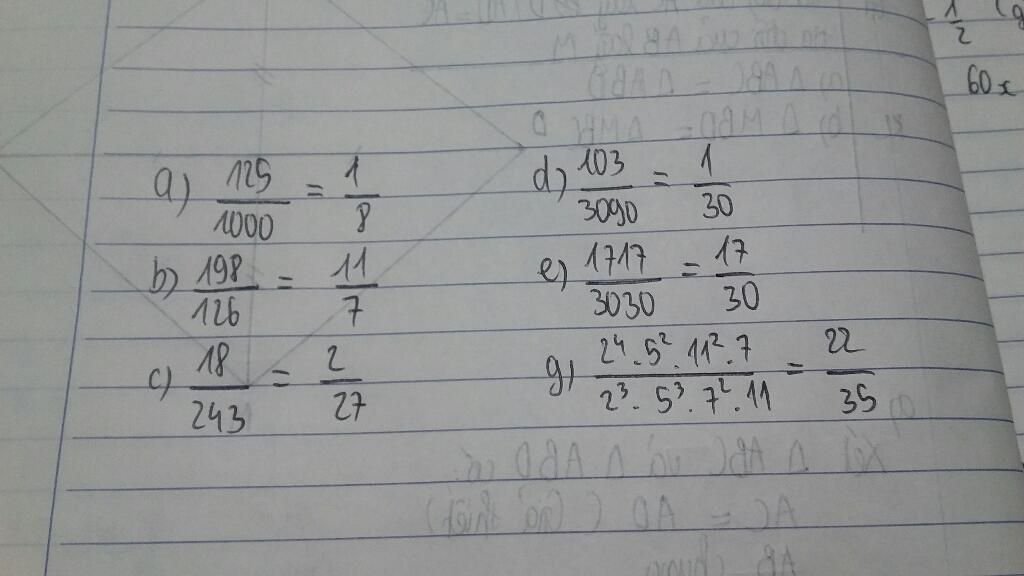 a) 125/1000 = 1/8
b) 198/126 = 11/7
c) 18/243 = 2/27
d) 103/3090 = 1/30
e) 1717/3030 = 17/30
g) 2⁴.5².11².7/2³.5³.7².11 = 22/35
1/2
60x